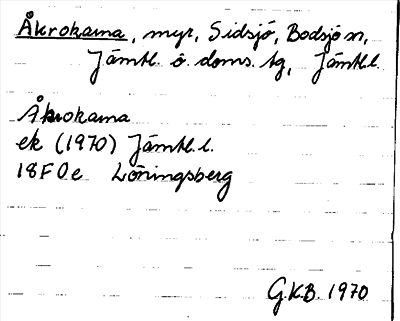 Åkrokarna, myr, Sidsjö, Bodsjö sn,
Jämtl. ö. doms. tg, Jämtl.l.
Åkrokarna
ek (1970) Jämtl.l.
18F 0e Löningsberg
G.K.B. 1970